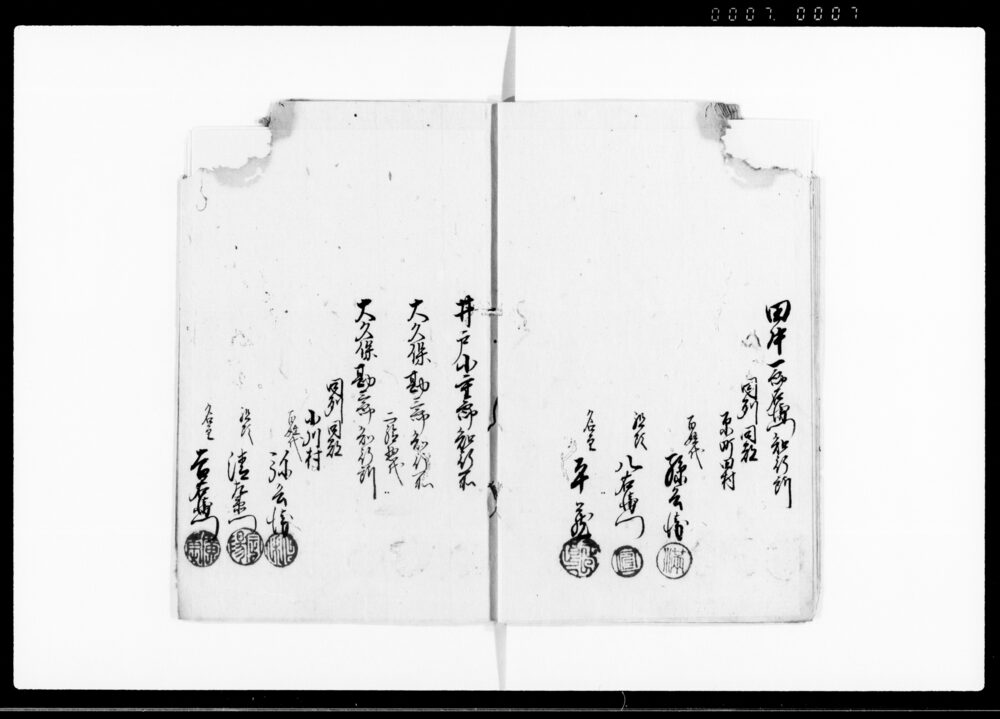 0007 0007
田中一郎右衛門知行所
同列同郡
原町田村
百姓代
孫兵衛
組頭
八右衛門
名主
平蔵
井戸小重郎知行所
大久保勘三郎知行所
大久保勘三郎知行所
同列同郡
小川村
百姓代
弥兵衛
組頭
清左衛門
名主
吉右衛門